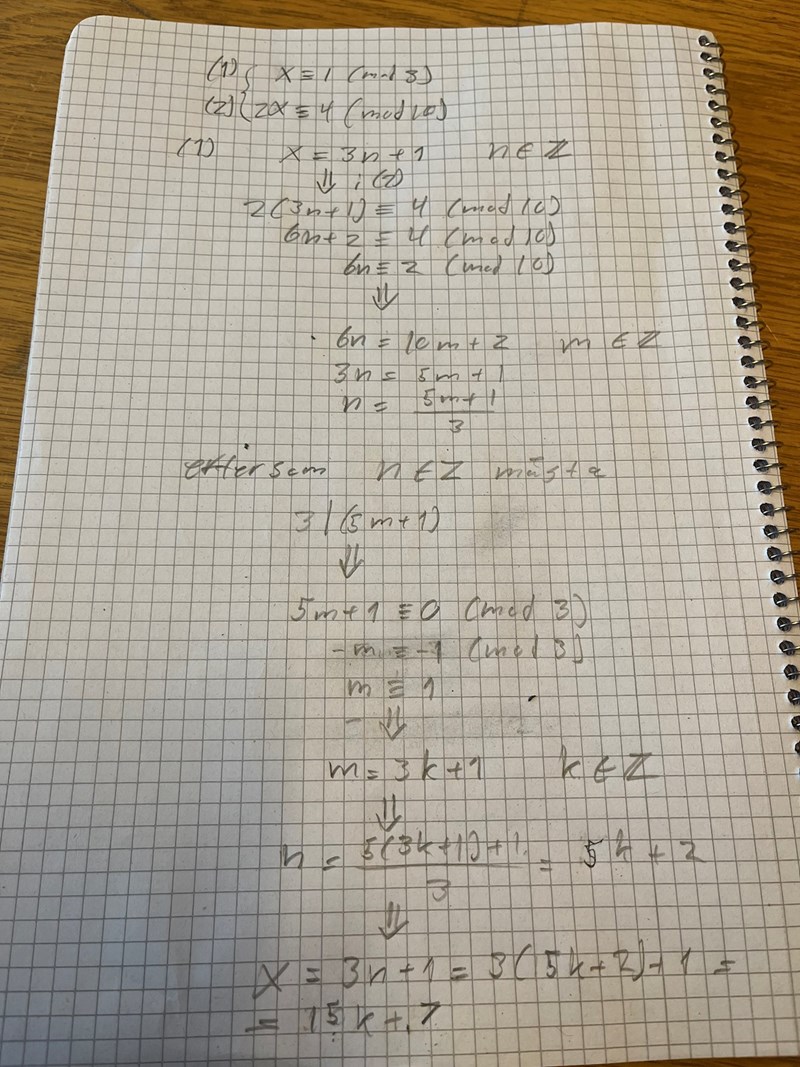 (1) { x ≡ 1 (mod 3)
(2) { 2x ≡ 4 (mod 10)
(1) x = 3n + 1 n ∈ Z
⇓ i (2)
2(3n+1) ≡ 4 (mod 10)
6n + 2 ≡ 4 (mod 10)
6n ≡ 2 (mod 10)
⇓
6n = 10m + 2 m ∈ Z
3n = 5m + 1
n = (5m+1)/3
eftersom n ∈ Z måste
3 | (5m+1)
⇓
5m + 1 ≡ 0 (mod 3)
-m ≡ -1 (mod 3)
m ≡ 1
⇓
m = 3k + 1 k ∈ Z
⇓
n = (5(3k+1)+1)/3 = 5k + 2
⇓
x = 3n + 1 = 3(5k+2)+1 =
= 15k + 7